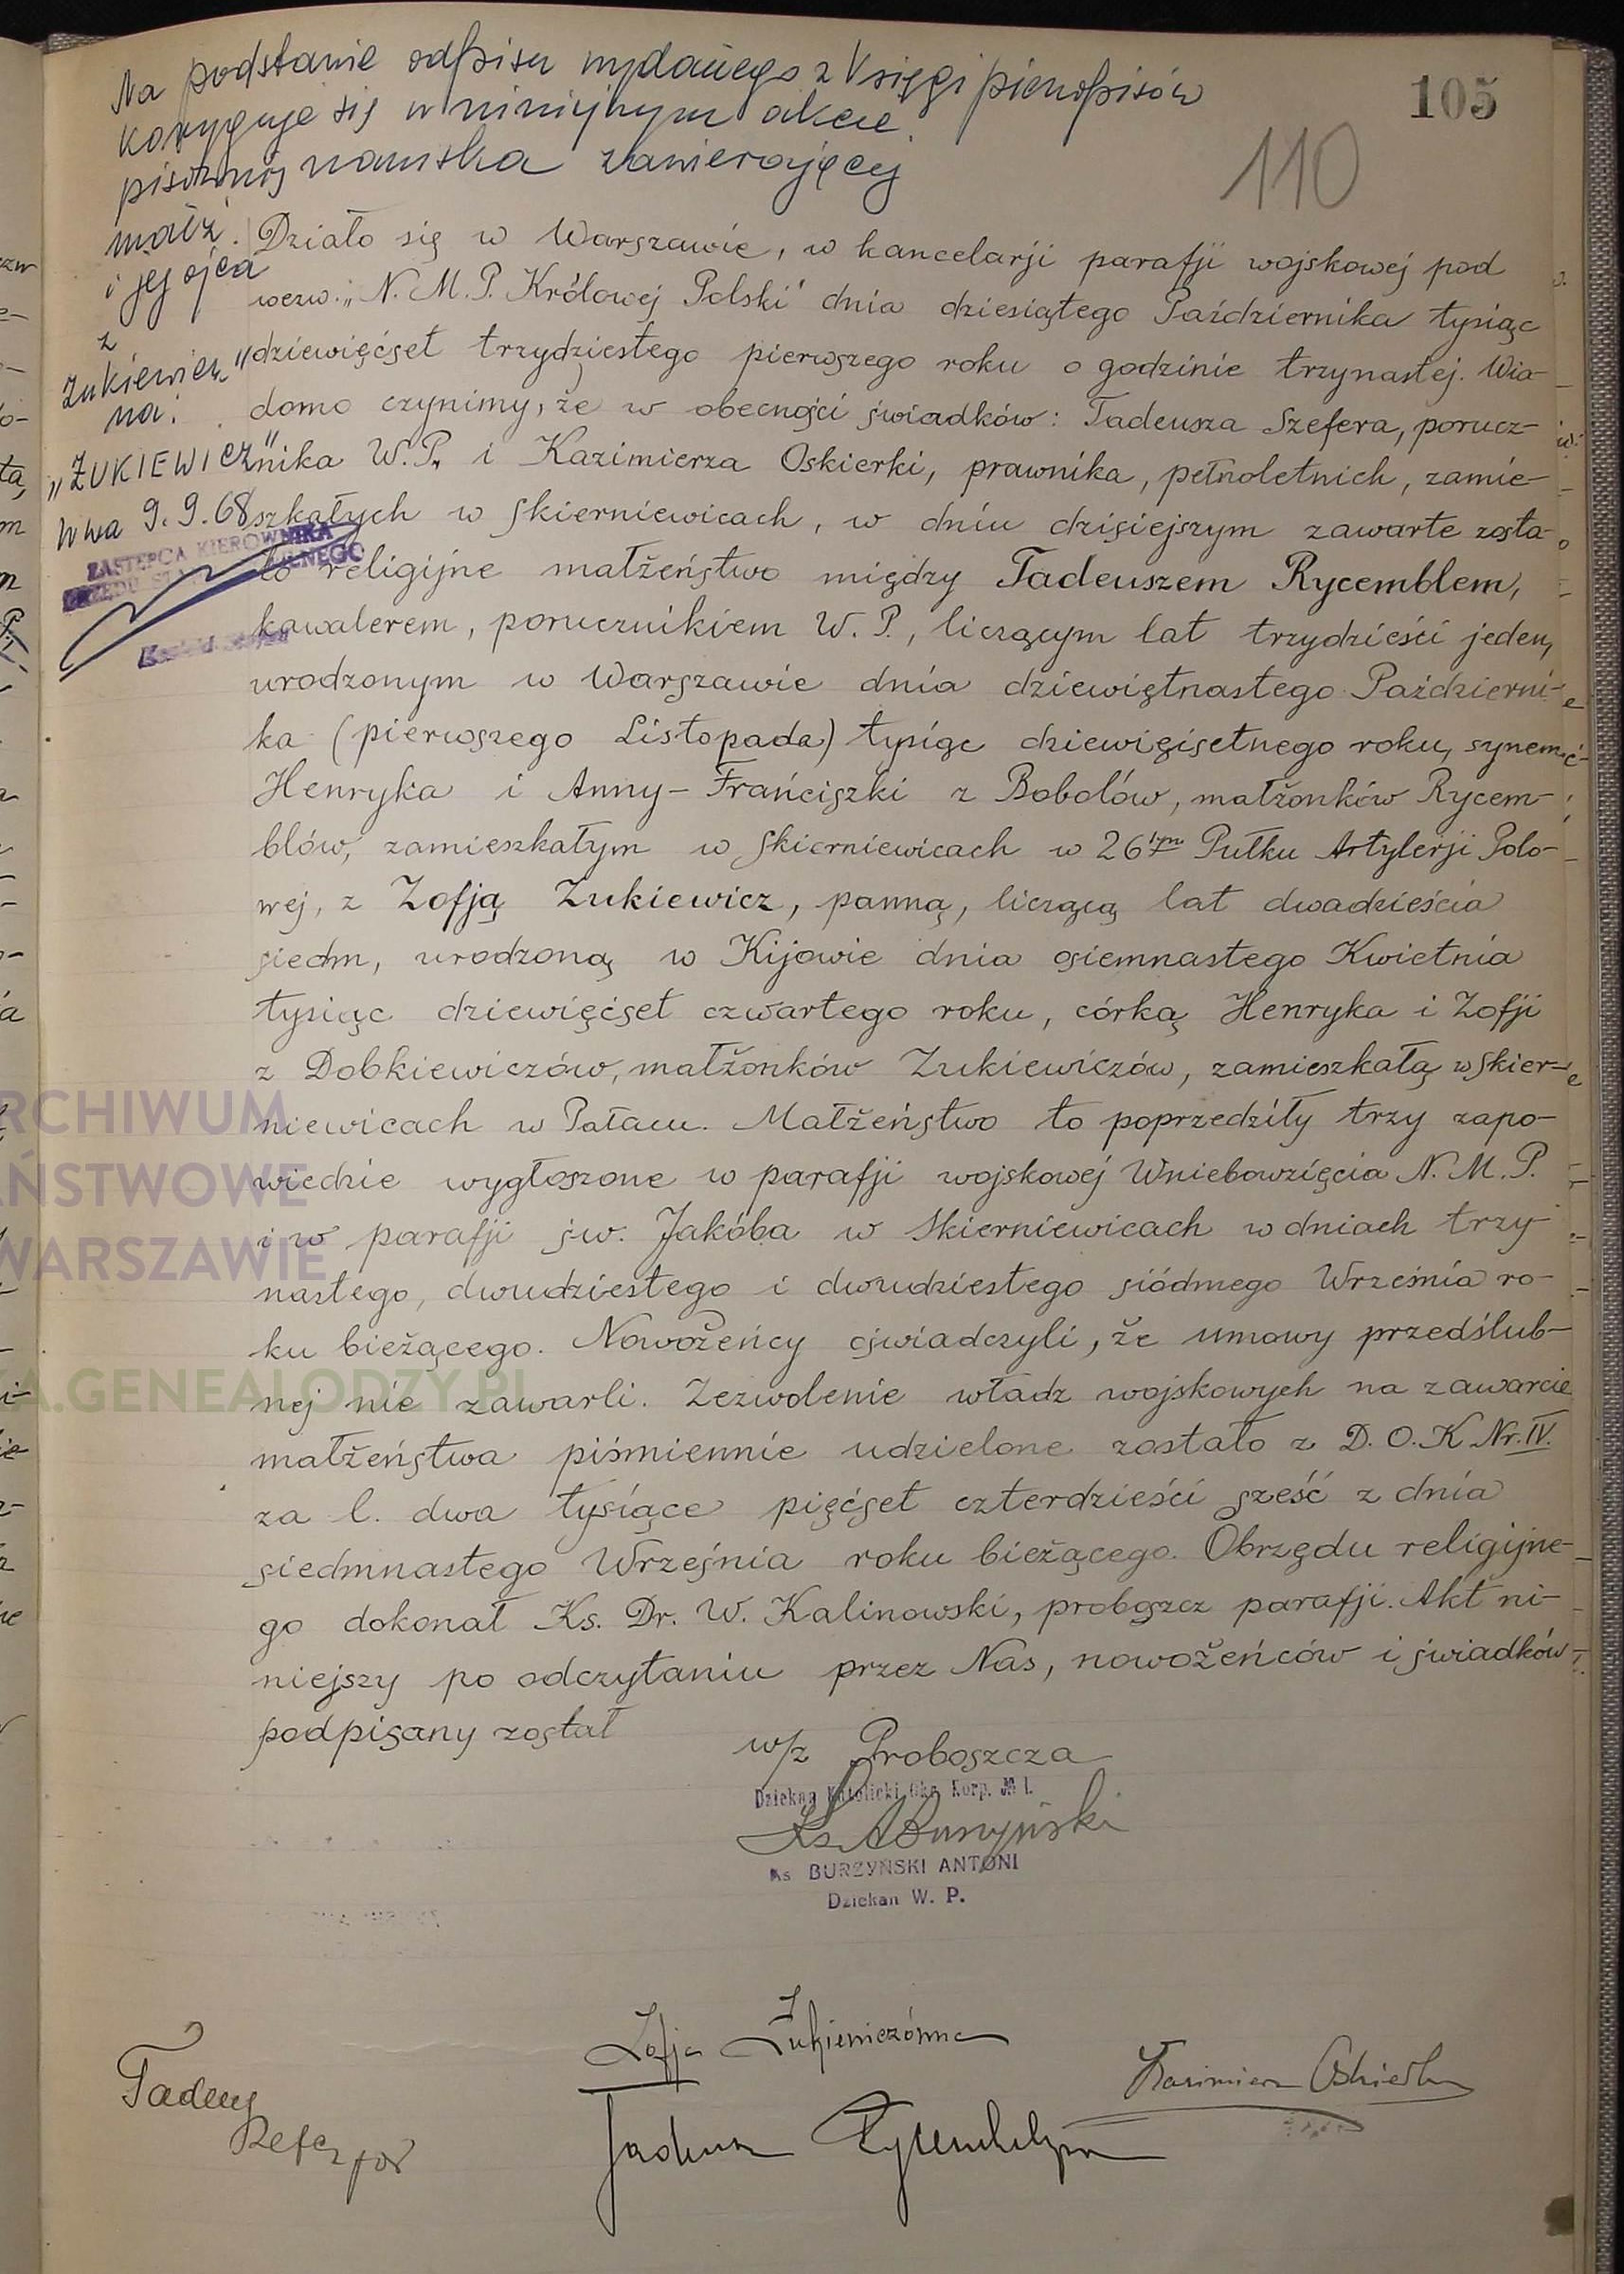 105
110
Na podstawie odpisu wydanego z Księgi pierwopisów
koryguje się w niniejszym akcie
pisownię nazwiska zawierającej
małż.
i jej ojca
z
Zukiewicz"
na:
„ŻUKIEWICZ"
W-wa 9.9.68
ZASTĘPCA KIEROWNIKA
Działo się w Warszawie, w kancelarji parafji wojskowej pod
wezw. „N. M. P. Królowej Polski" dnia dziesiątego Października tysiąc
dziewięćset trzydziestego pierwszego roku o godzinie trzynastej. Wia-
domo czynimy, że w obecności świadków: Tadeusza Szefera, porucz-
nika W.P. i Kazimierza Oskierki, prawnika, pełnoletnich, zamie-
szkałych w Skierniewicach, w dniu dzisiejszym zawarte zosta-
ło religijne małżeństwo między Tadeuszem Rycemblem,
kawalerem, porucznikiem W. P., liczącym lat trzydzieści jeden,
urodzonym w Warszawie dnia dziewiętnastego Październi-
ka (pierwszego Listopada) tysiąc dziewięćsetnego roku, synem
Henryka i Anny-Franciszki z Bobolów, małżonków Rycem-
blów, zamieszkałym w Skierniewicach w 26tym Pułku Artylerji Polo-
wej, z Zofją Zukiewicz, panną, liczącą lat dwadzieścia
siedm, urodzoną w Kijowie dnia osiemnastego Kwietnia
tysiąc dziewięćset czwartego roku, córką Henryka i Zofji
z Dobkiewiczów, małżonków Zukiewiczów, zamieszkałą w Skier-
niewicach w Pałacu. Małżeństwo to poprzedziły trzy zapo-
wiedzie wygłoszone w parafji wojskowej Wniebowzięcia N. M. P.
i w parafji św. Jakóba w Skierniewicach w dniach trzy-
nastego, dwudziestego i dwudziestego siódmego Września ro-
ku bieżącego. Nowożeńcy oświadczyli, że umowy przedślub-
nej nie zawarli. Zezwolenie władz wojskowych na zawarcie
małżeństwa piśmiennie udzielone zostało z D. O. K Nr. IV.
za l. dwa tysiące pięćset czterdzieści sześć z dnia
siedmnastego Września roku bieżącego. Obrzędu religijne-
go dokonał Ks. Dr. W. Kalinowski, proboszcz parafji. Akt ni-
niejszy po odczytaniu przez Nas, nowożeńców i świadków
podpisany został
w/z Proboszcza
Dziekan Katolicki Okr. Korp. № I.
Ks. A Burzyński
Ks BURZYŃSKI ANTONI
Dziekan W. P.
Zofja Żukiewiczówna
Kazimierz Oskierko
Tadeusz
Szefer por
Tadeusz
ARCHIWUM
PAŃSTWOWE
WARSZAWIE
A.GENEALODZY.PL